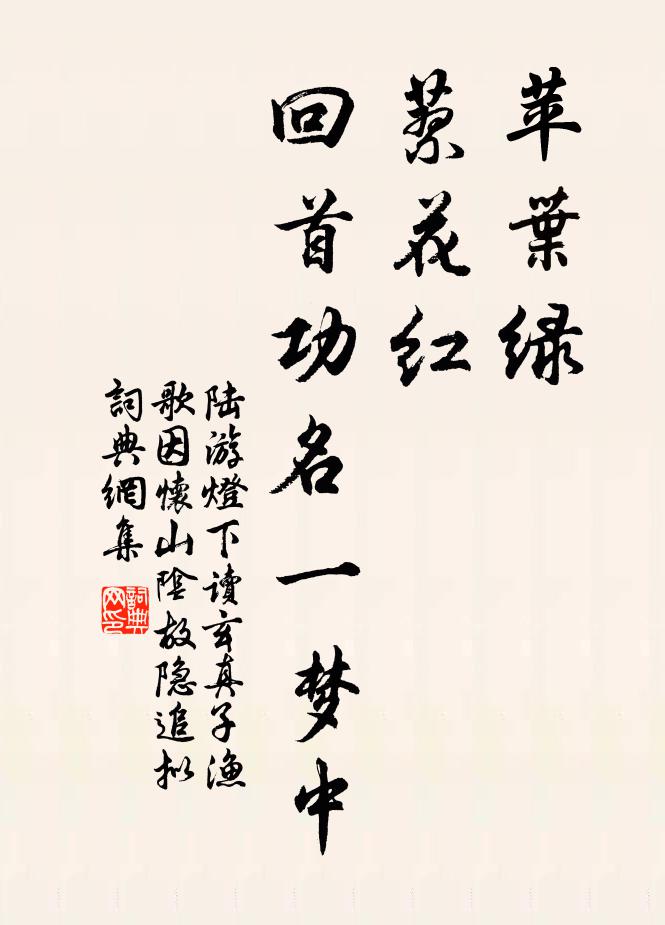 苹葉绿
蓼花红
回首功名一梦中
陆游燈下讀玄真子漁
歌因懷山陰故隐追拟
詞典網集
詞典
网印